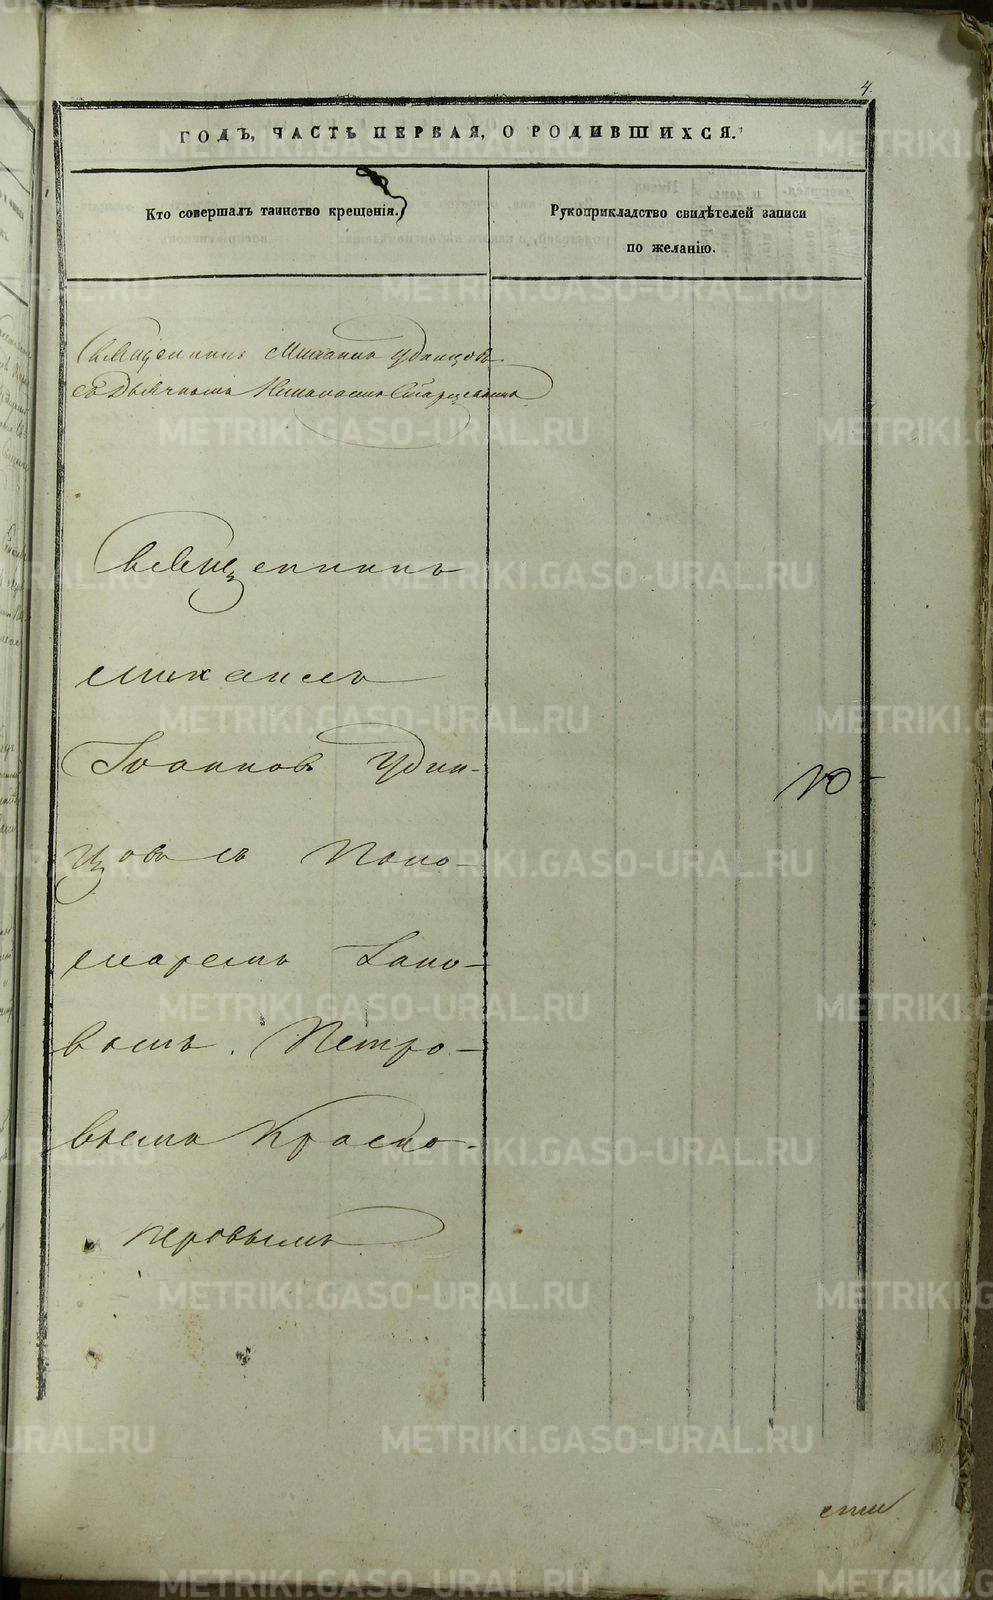 4.
ГОДЪ, ЧАСТЬ ПЕРВАЯ, О РОДИВШИХСЯ.
Кто совершалъ таинство крещенія.
Рукоприкладство свидѣтелей записи
по желанію.
Священникъ Михаилъ Удинцовъ
съ Дьячкомъ
Священникъ
Михаилъ
Іоанновъ Удин-
цовъ съ Поно-
маремъ Іако-
вомъ Петро-
вымъ Красно-
перовымъ
METRIKI.GASO-URAL.RU